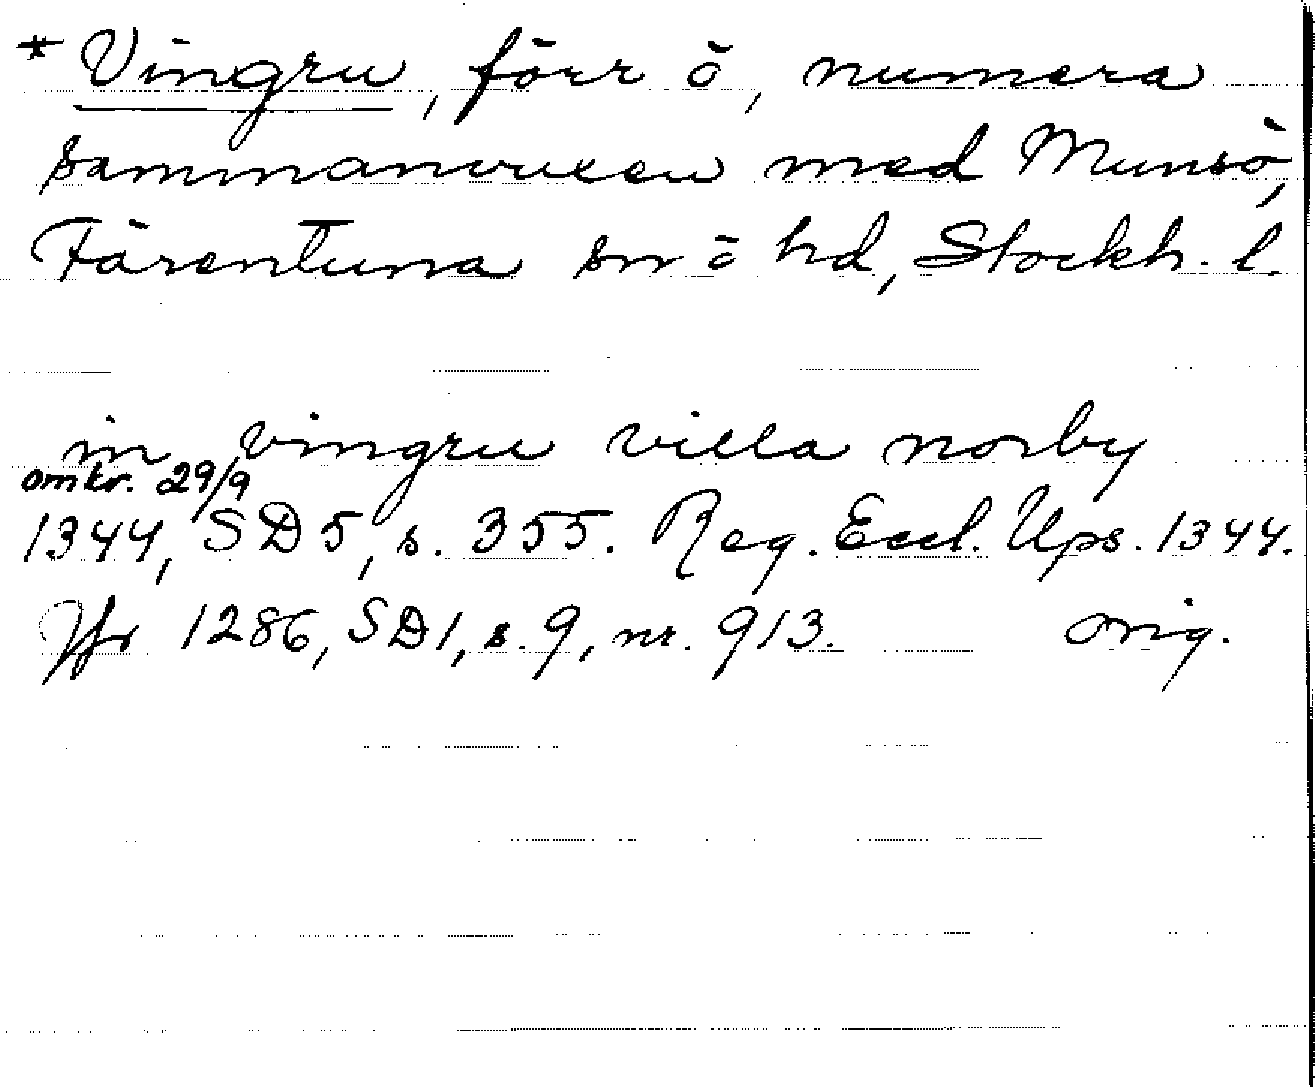 * Vingru, förr ö, numera
sammanvuxen med Munsö,
Färentuna sn o hd, Stockh. l.
in vingru villa norby
omkr. 29/9
1344, SD 5, s. 355. Reg. Eccl. Ups. 1344.
Jfr 1286, SD 1, s. 9, nr. 913. orig.